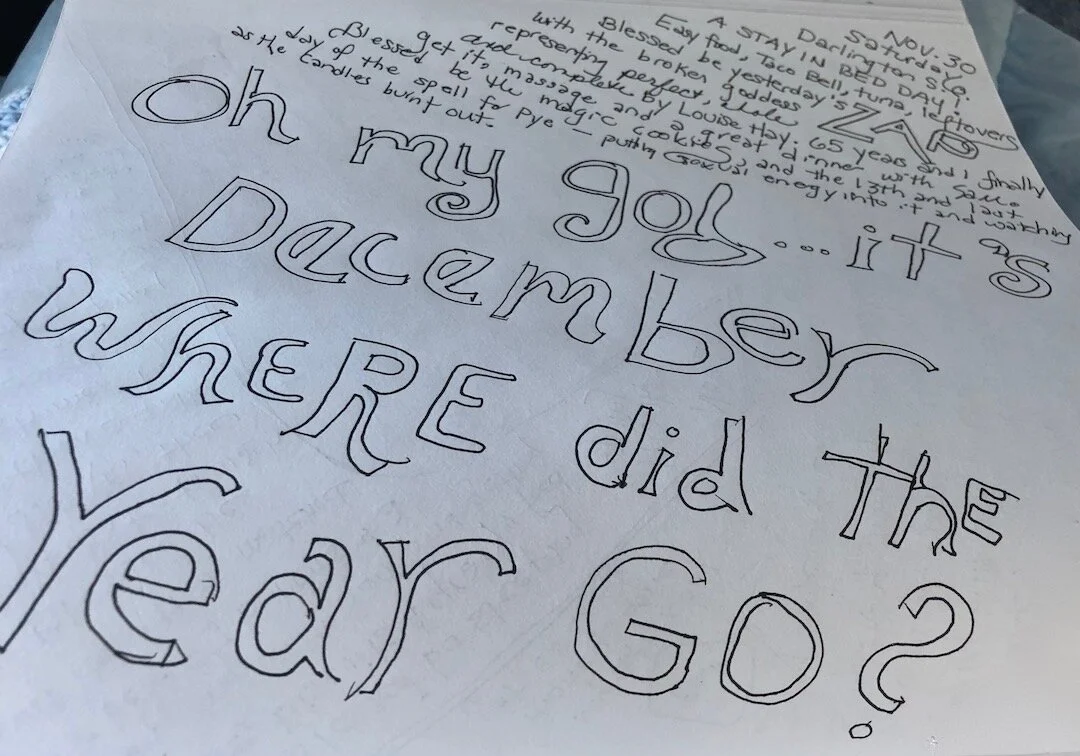 NOV. 30
Saturday
Darlington S.C.
A STAY IN BED DAY!
Easy food, Taco Bell, tuna, leftovers
Blessed be yesterday's ZAG
with the broken goddess
representing perfect, whole
and complete by Louise Hay. 65 years and I finally
get its massage and a great dinner with Sam.
Blessed be the magic cookies, and the 13th and last
day of the spell for Pye - putting energy into it and watching
as the candles burnt out.
Oh my god...it's
December
WhERE did thE
Year GO?